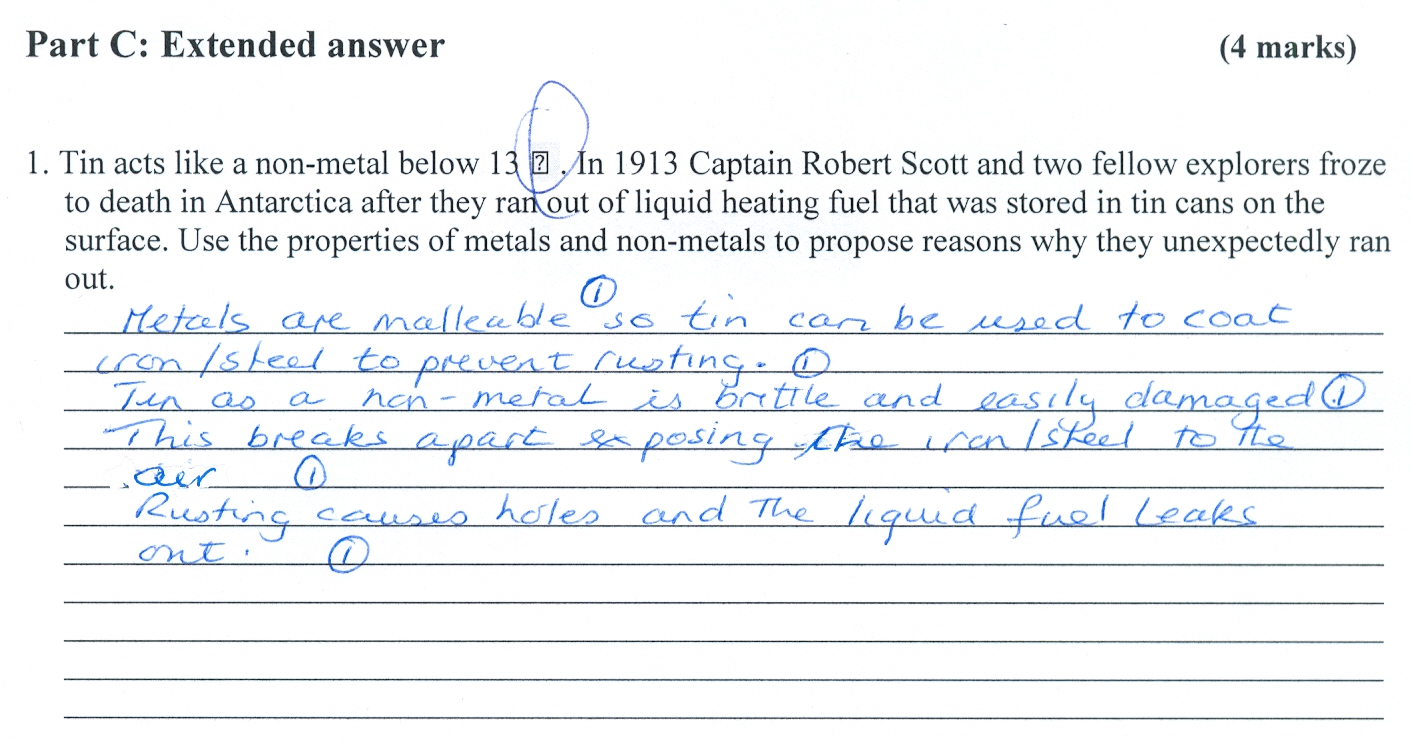 Part C: Extended answer (4 marks)
1. Tin acts like a non-metal below 13 [?]. In 1913 Captain Robert Scott and two fellow explorers froze
to death in Antarctica after they ran out of liquid heating fuel that was stored in tin cans on the
surface. Use the properties of metals and non-metals to propose reasons why they unexpectedly ran
out.
①
Metals are malleable so tin can be used to coat
iron/steel to prevent rusting. ①
Tin as a non-metal is brittle and easily damaged ①
This breaks apart exposing the iron/steel to the
air ①
Rusting causes holes and the liquid fuel leaks
out. ①